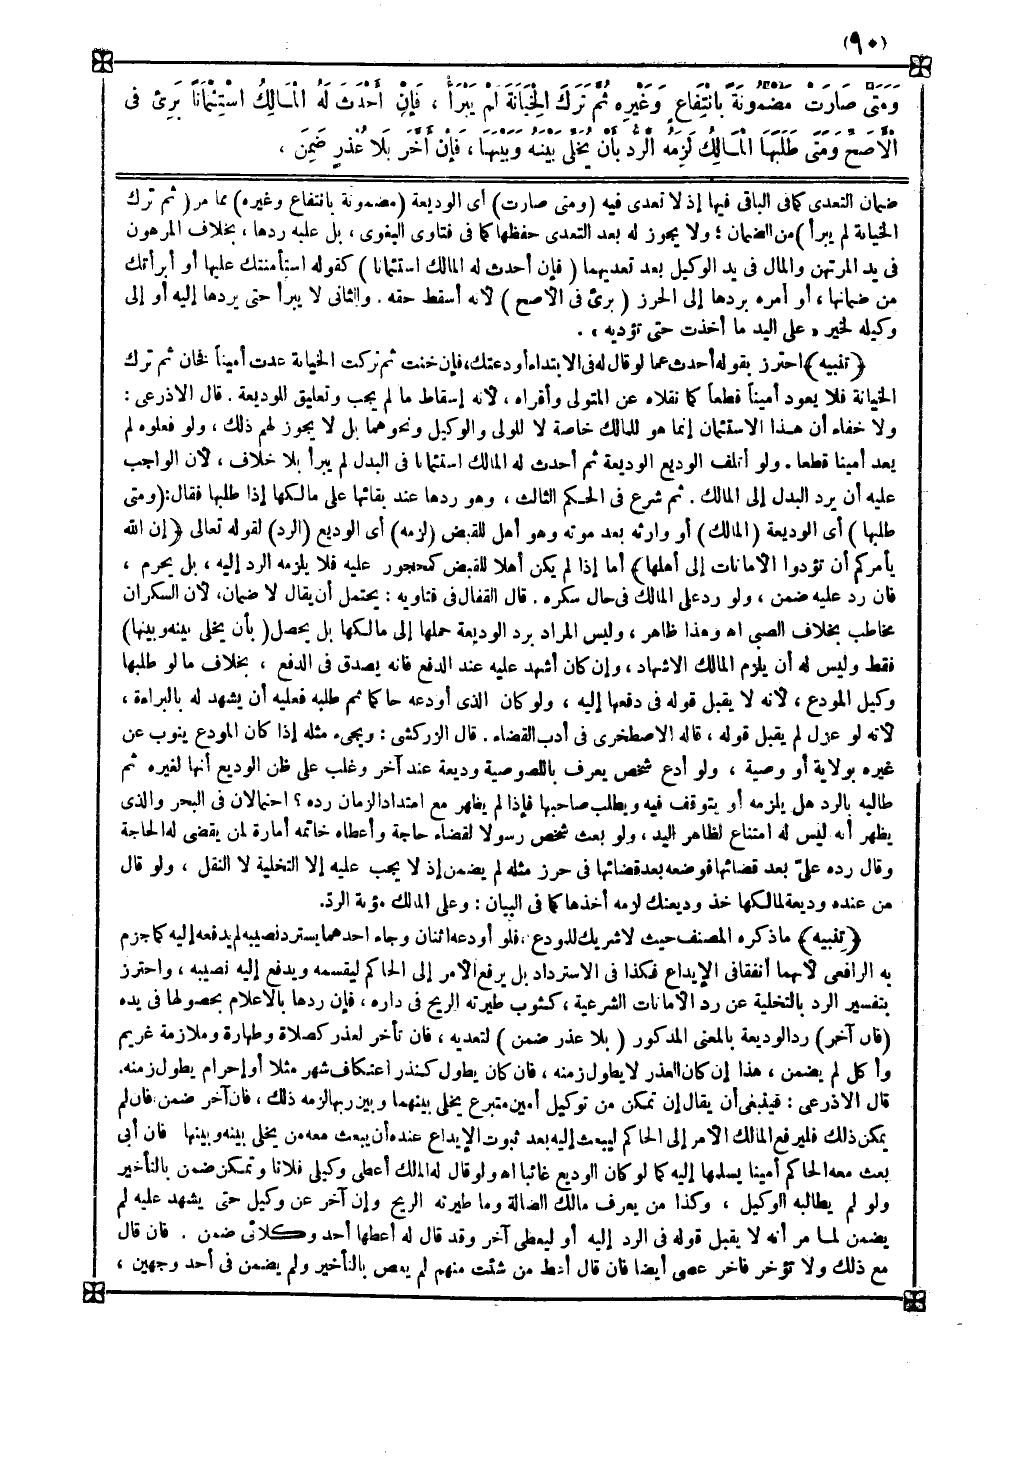 (٩٠)
وَمَتَى صَارَتْ مَضْمُونَةً بِانْتِفَاعٍ وَغَيْرِهِ ثُمَّ تَرَكَ الْخِيَانَةَ لَمْ يَبْرَأْ ، فَإِنْ أَحْدَثَ لَهُ الْمَالِكُ اسْتِئْمَانًا بَرِئَ فى
الْأَصَحِّ وَمَتَى طَلَبَهَا الْمَالِكُ لَزِمَهُ الرَّدُّ بِأَنْ يُخَلِّىَ بَيْنَهُ وَبَيْنَهَا ، فَإِنْ أَخَّرَ بِلَا عُذْرٍ ضَمِنَ ،
ضمان التعدى كما فى الباقى فيها إذ لا تعدى فيه (ومتى صارت) أى الوديعة (مضمونة بانتفاع وغيره) مما مر (ثم ترك
الخيانة لم يبرأ) من الضمان ؛ ولا يجوز له بعد التعدى حفظها كما فى فتاوى البغوى ، بل عليه ردها ، بخلاف المرهون
فى يد المرتهن والمال فى يد الوكيل بعد تعديهما ( فإن أحدث له المالك استئمانا ) كقوله استأمنتك عليها أو أبرأتك
من ضمانها ، أو أمره بردها إلى الحرز ( برئ فى الأصح ) لأنه أسقط حقه . والثانى لا يبرأ حتى يردها إليه أو إلى
وكيله لخبر « على اليد ما أخذت حتى تؤديه » .
﴿ تنبيه ﴾ احترز بقوله أحدث عما لو قال له فى الابتداء أودعتك، فإن خنت ثم تركت الخيانة عدت أميناً فخان ثم ترك
الخيانة فلا يعود أميناً قطعاً كما نقلاه عن المتولى وأقراه ، لأنه إسقاط ما لم يجب وتعليق للوديعة . قال الاذرعى :
ولا خفاء أن هذا الاستئمان إنما هو للمالك خاصة لا للولى والوكيل ونحوهما بل لا يجوز لهم ذلك ، ولو فعلوه لم
يعد أمينا قطعا . ولو أتلف الوديع الوديعة ثم أحدث له المالك استئمانا فى البدل لم يبرأ بلا خلاف ، لأن الواجب
عليه أن يرد البدل إلى المالك . ثم شرع فى الحكم الثالث ، وهو ردها عند بقائها على مالكها إذا طلبها فقال: (ومتى
طلبها ) أى الوديعة (المالك) أو وارثه بعد موته وهو أهل للقبض (لزمه) أى الوديع (الرد) لقوله تعالى ﴿ إن الله
يأمركم أن تؤدوا الأمانات إلى أهلها﴾ أما إذا لم يكن أهلا للقبض كمحجور عليه فلا يلزمه الرد إليه ، بل يحرم ،
فان رد عليه ضمن ، ولو رد على المالك فى حال سكره . قال القفال فى فتاويه : يحتمل أن يقال لا ضمان، لأن السكران
مخاطب بخلاف الصبى اه وهذا ظاهر ، وليس المراد برد الوديعة حملها إلى مالكها بل يحصل ( بأن يخلى بينه وبينها)
فقط وليس له أن يلزم المالك الاشهاد ، وإن كان أشهد عليه عند الدفع فانه يصدق فى الدفع ، بخلاف ما لو طلبها
وكيل المودع ، لأنه لا يقبل قوله فى دفعها إليه ، ولو كان الذى أودعه حاكما ثم طلبه فعليه أن يشهد له بالبراءة ،
لأنه لو عزل لم يقبل قوله ، قاله الاصطخرى فى أدب القضاء . قال الزركشى : ويجىء مثله إذا كان المودع ينوب عن
غيره بولاية أو وصية ، ولو أدع شخص يعرف باللصوصية وديعة عند آخر وغلب على ظن الوديع أنها لغيره ثم
طالبه بالرد هل يلزمه أو يتوقف فيه ويطلب صاحبها فإذا لم يظهر مع امتداد الزمان رده ؟ احتمالان فى البحر والذى
يظهر أنه ليس له امتناع لظاهر اليد ، ولو بعث شخص رسولا لقضاء حاجة وأعطاه خاتمه أمارة لمن يقضى له الحاجة
وقال رده علىّ بعد قضائها فوضعه بعد قضائها فى حرز مثله لم يضمن إذ لا يجب عليه إلا التخلية لا النقل ، ولو قال
من عنده وديعة لمالكها خذ وديعتك لزمه أخذها كما فى البيان : وعلى المالك مؤنة الرد.
﴿ تنبيه ﴾ ما ذكره المصنف حيث لا شريك للمودع ، فلو أودعه اثنان وجاء احدهما يسترد نصيبه لم يدفعه إليه كما جزم
به الرافعى لأنهما أتفقا فى الإيداع فكذا فى الاسترداد بل يرفع الأمر إلى الحاكم ليقسمه ويدفع إليه نصيبه ، واحترز
بتفسير الرد بالتخلية عن رد الأمانات الشرعية ، كثوب طيرته الريح فى داره ، فإن ردها بالاعلام بحصولها فى يده
(فان أخر) رد الوديعة بالمعنى المذكور ( بلا عذر ضمن ) لتعديه ، فان تأخر لعذر كصلاة وطهارة وملازمة غريم
وأكل لم يضمن ، هذا إن كان العذر لا يطول زمنه ، فان كان يطول كنذر اعتكاف شهر مثلا أو إحرام يطول زمنه.
قال الاذرعى : فينبغى أن يقال إن تمكن من توكيل أمين متبرع يخلى بينهما وبين ربها لزمه ذلك ، فان أخر ضمن ، فان لم
يمكن ذلك فليرفع المالك الأمر إلى الحاكم ليبعث إليه بعد ثبوت الإيداع عنده أن يبعث معه من يخلى بينه وبينها فان أبى
بعث معه الحاكم أمينا يسلمها إليه كما لو كان الوديع غائبا اه ولو قال له المالك أعطى وكيلى فلانا وتمكن ضمن بالتأخير
ولو لم يطالبه الوكيل ، وكذا من يعرف مالك الضالة وما طيرته الريح وإن أخر عن وكيل حتى يشهد عليه لم
يضمن لما مر أنه لا يقبل قوله فى الرد إليه أو ليعطى آخر وقد قال له أعطها أحد وكلائى ضمن . فان قال
مع ذلك ولا تؤخر فاخر عصى أيضا فان قال أعط من شئت منهم لم يعص بالتأخير ولم يضمن فى أحد وجهين ،